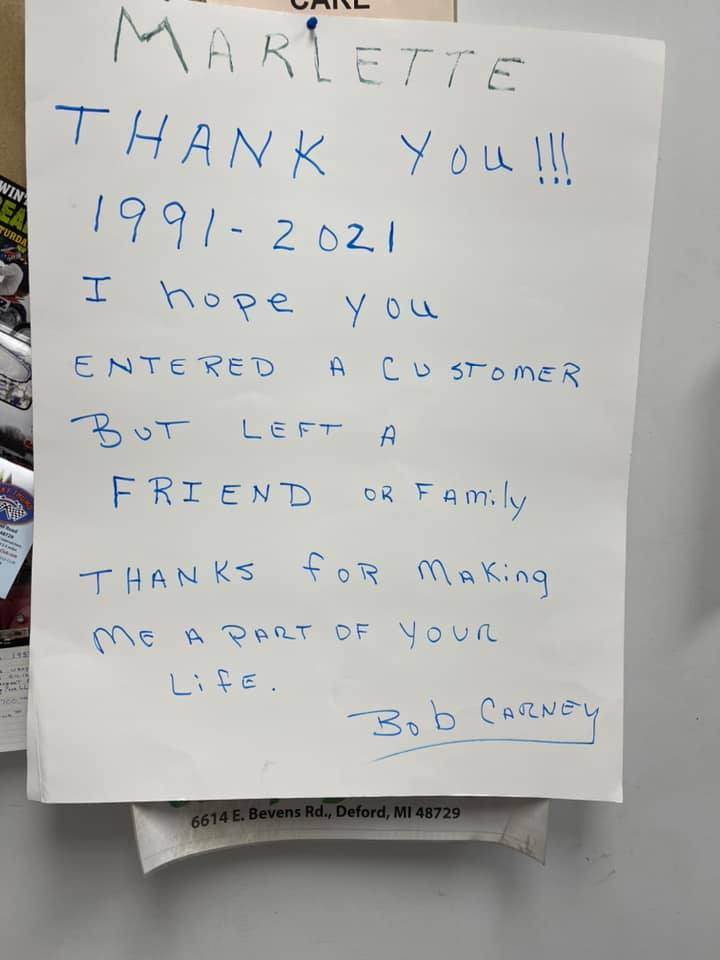 CARE
MARLETTE
THANK YOU!!!
1991-2021
I hope you
ENTERED A CUSTOMER
BUT LEFT A
FRIEND OR FAMily
THANKS foR MAKing
ME A PART OF YOUR
LifE.
Bob CARNEY
6614 E. Bevens Rd., Deford, MI 48729